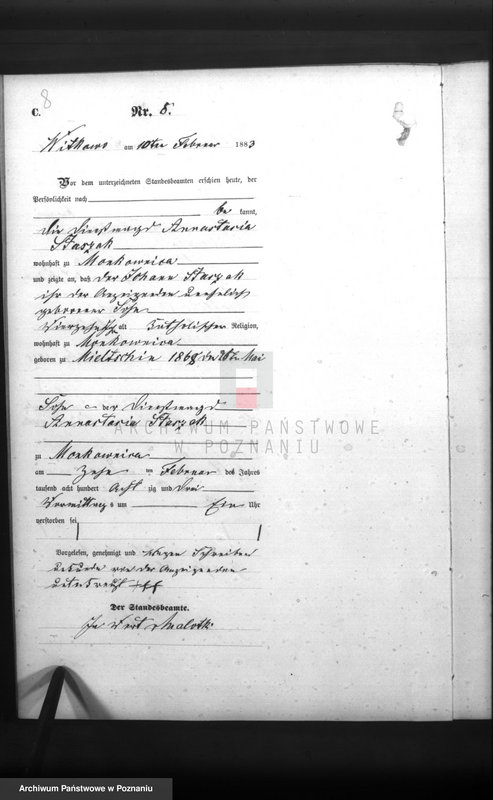 8
C.
Nr. 5.
Witkowo am 10ten Februar 1883
Vor dem unterzeichneten Standesbeamten erschien heute, der
Persönlichkeit nach
be kannt,
die Dienstmagd Annastasia
Staszak
wohnhaft zu Monkownica
und zeigte an, daß der Johann Staszak
ihr der Anzeigenden unehelich
geborener Sohn
Vierzehn J alt Katholischer Religion,
wohnhaft zu Monkownica
geboren zu Mieltschin 1868 den 26ten Mai
Sohn der Dienstmagd
Annastasia Staszak
ARCHIWUM PAŃSTWOWE
W POZNANIU
zu Monkownica
am Zehn ten Februar des Jahres
tausend acht hundert Acht zig und drei
Vormittags um Ein Uhr
verstorben sei
Vorgelesen, genehmigt und wegen Schreibens
unkunde von der Anzeigenden
unterkreuzt +++
Der Standesbeamte.
In Vert
Archiwum Państwowe w Poznaniu